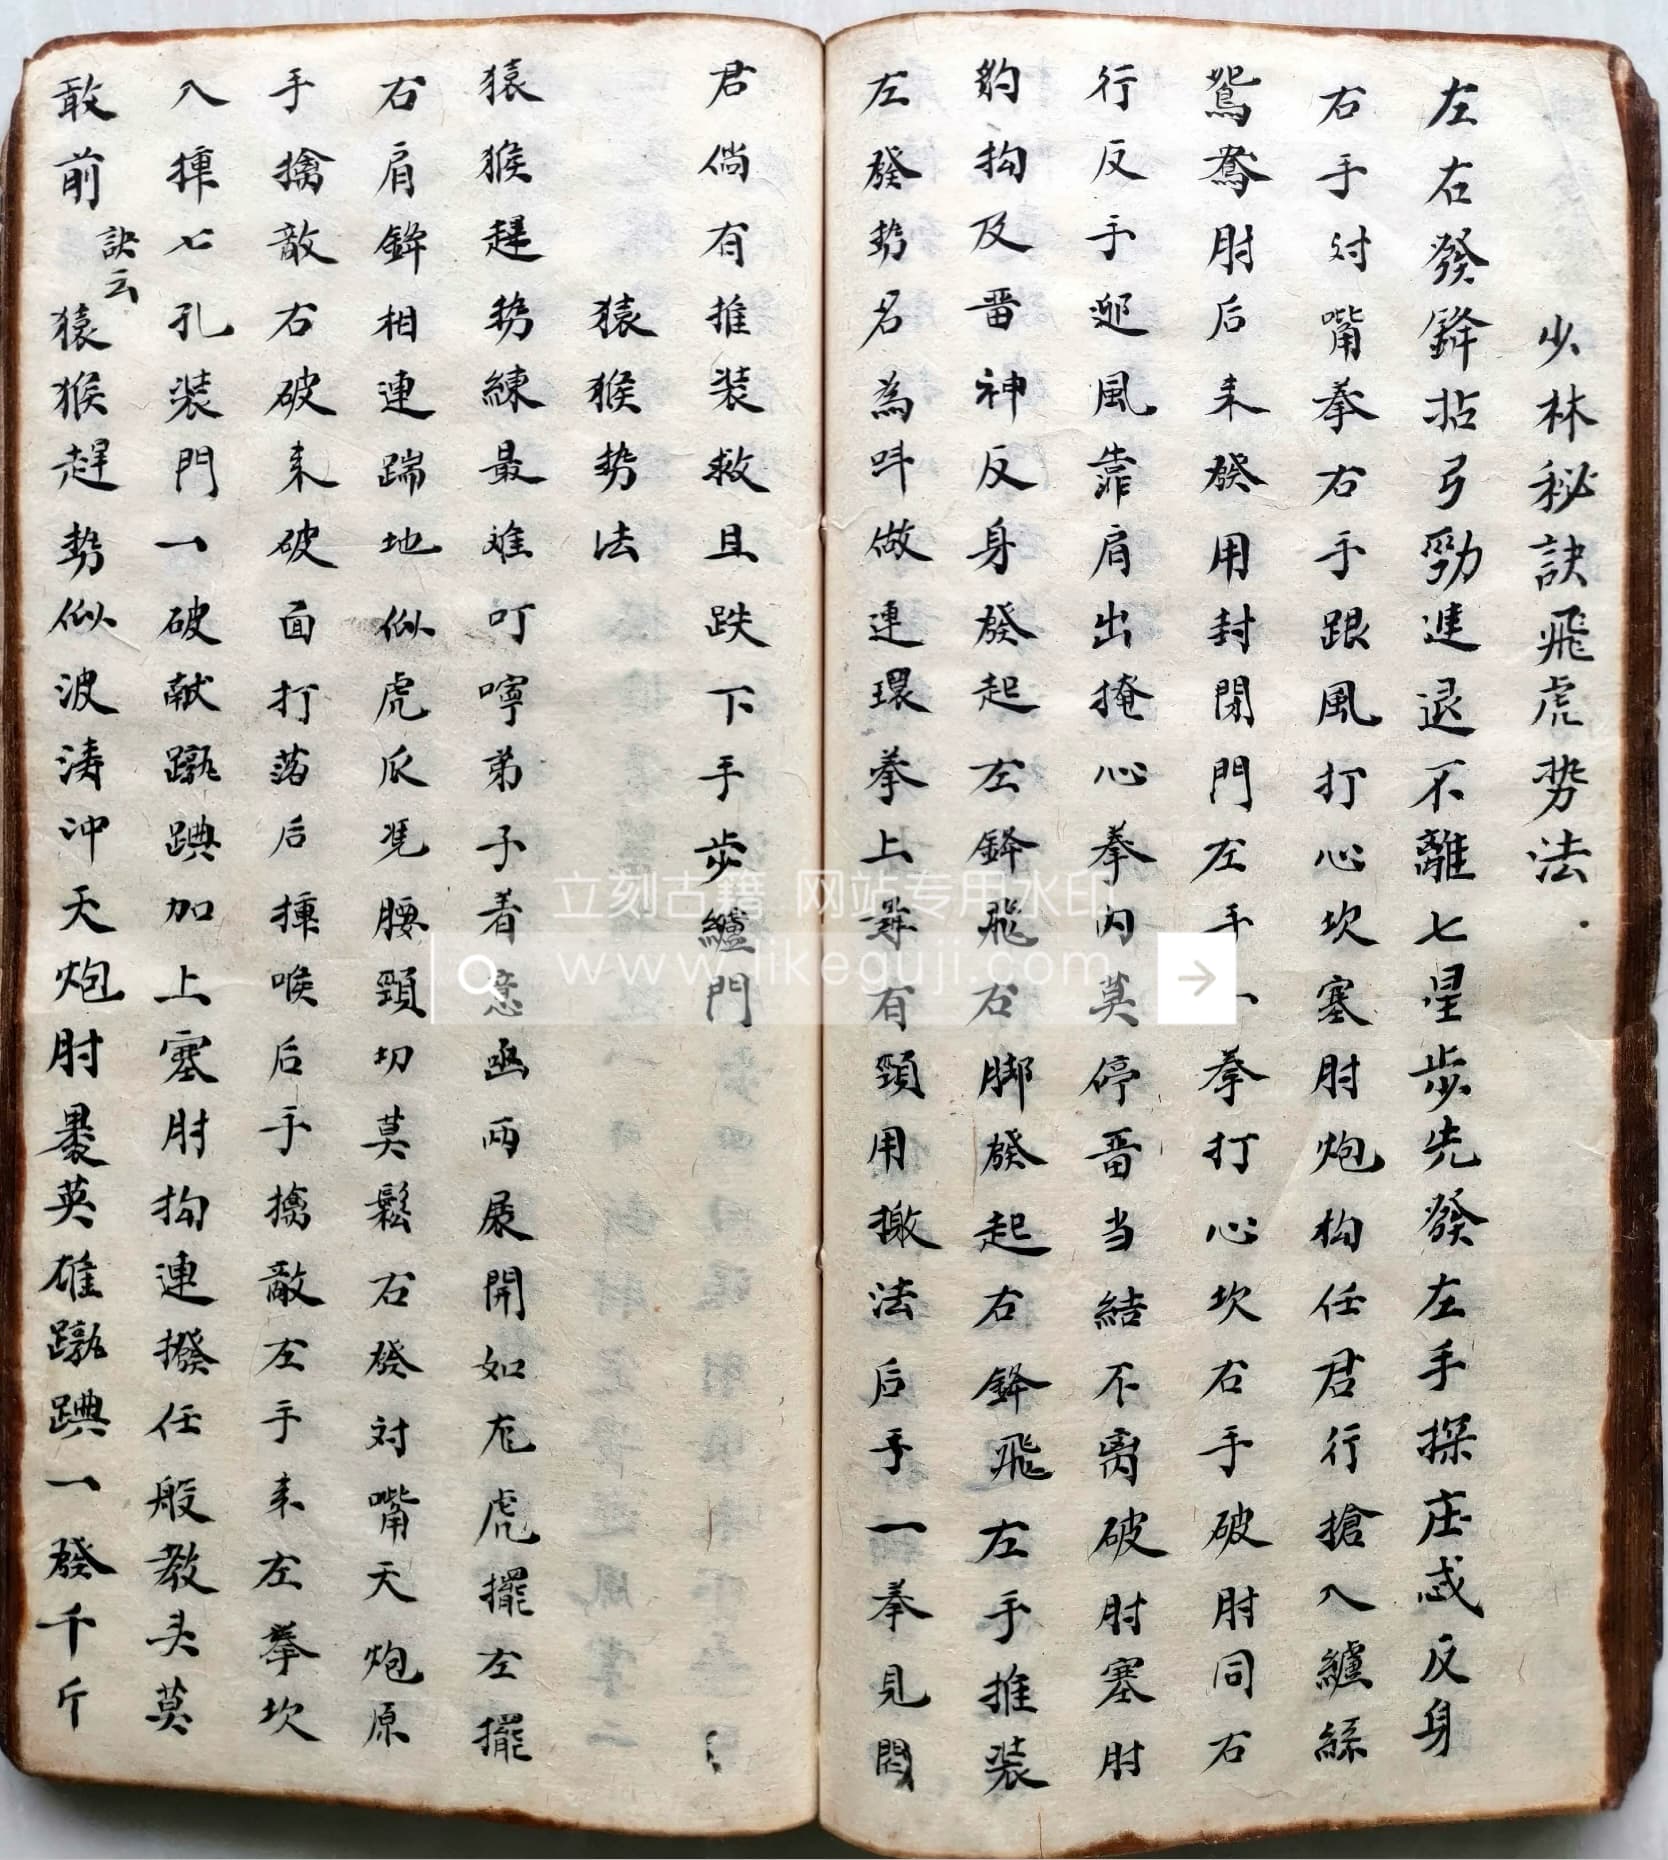 少林秘訣飛虎势法
左右發鋒拈弓勁進退不離七星步先發左手探庄或反身
右手対嘴拳右手跟風打心坎塞肘炮构任君行搶入纑絲
鴛鴦肘后耒發用封閉門左手一拳打心坎右手破肘同右
行反手迎風靠肩出掩心拳内莫停畨当結不离破肘塞肘
豹抅及畨神反身發起左鋒飛右脚發起右鋒飛左手推装
左發势名為呌做連環拳上尋有頸用撤法后手一拳見閃
君倘有推装救且跌下手步纑門
猿猴势法
猿猴趕势練最难叮嚀弟子着意函兩展開如尨虎擺左擺
右肩鋒相連踹地似虎爪凴腰頸切莫鬆右發対嘴天炮原
手擒敵右破耒破面打落后揮喉后手擒敵左手耒左拳坎
入揮七孔装門一破献蹾踑加上塞肘抅連撥任般教头莫
敢前 訣云 猿猴趕势似波涛冲天炮肘裹英雄蹾踑一發千斤
立刻古籍 网站专用水印
www.likeguji.com